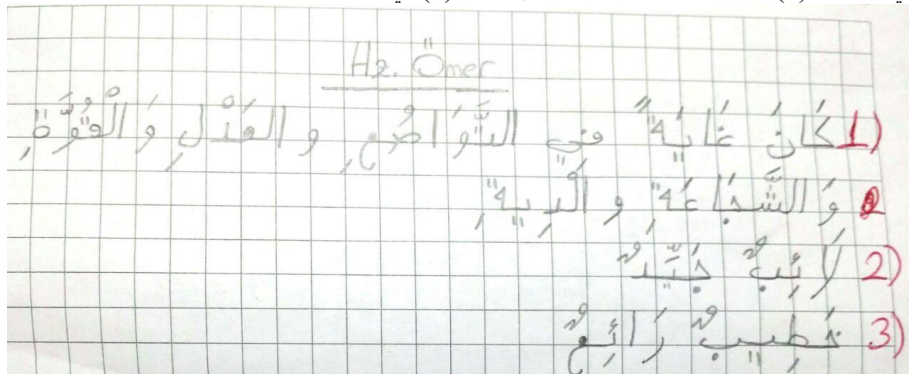 Hz. Ömer
1) كَانَ غَايَةً فِي التَّوَاضُعِ و العَدْلِ وَ الْقُوَّةِ
وَ الشَّجَاعَةِ و
2) جَيِّدٌ
3) خَطِيبٌ رَائِعٌ